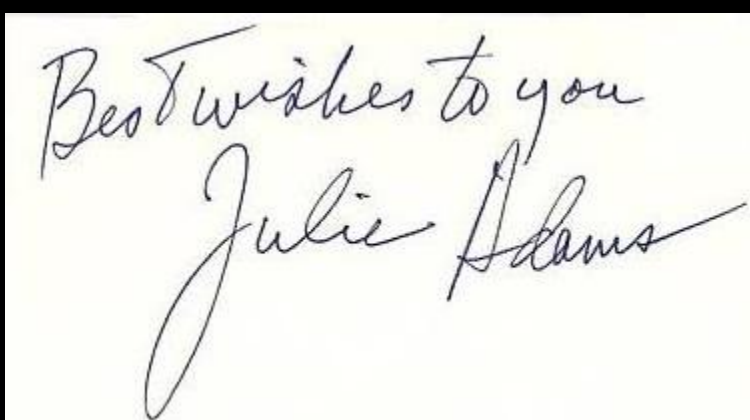 Best wishes to you
Julie Adams